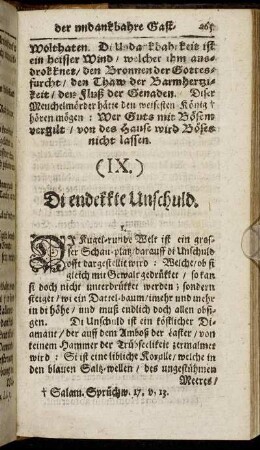 der undankbahre Gast. 465
Wolthaten. Di Undankbahrkeit ist
ein heisser Wind / welcher ihm aus-
drokknet / den Bronnen der Gottes-
furcht / den Thaw der Barmhertzi-
keit / den Fluß der Genaden. Diser
Meuchelmörder hätte den weisesten König †
hören mögen: Wer Guts mit Bösem
vergilt / von des Hause wird Böses
nicht lassen.
(IX.)
Di endekkte Unschuld.
1.
DI Kugel-runde Welt ist ein gros-
ser Schau-platz / darauff di Unschuld
offt dargestellet wird: Welche / ob si
gleich mit Gewalt gedrükket / so kan
si doch nicht unterdrükket werden; sondern
steiget / wi ein Dattel-baum / mehr und mehr
in di höhe / und muß endlich doch allen obsi-
gen. Di Unschuld ist ein köstlicher Di-
amant / der auff dem Amboß der Laster / von
keinem Hammer der Trübseelikeit zermalmet
wird: Si ist eine libliche Koralle / welche in
den blauen Saltz-wellen / des ungestühmen
Meeres /
† Salam. Sprüchw. 17. v. 13.